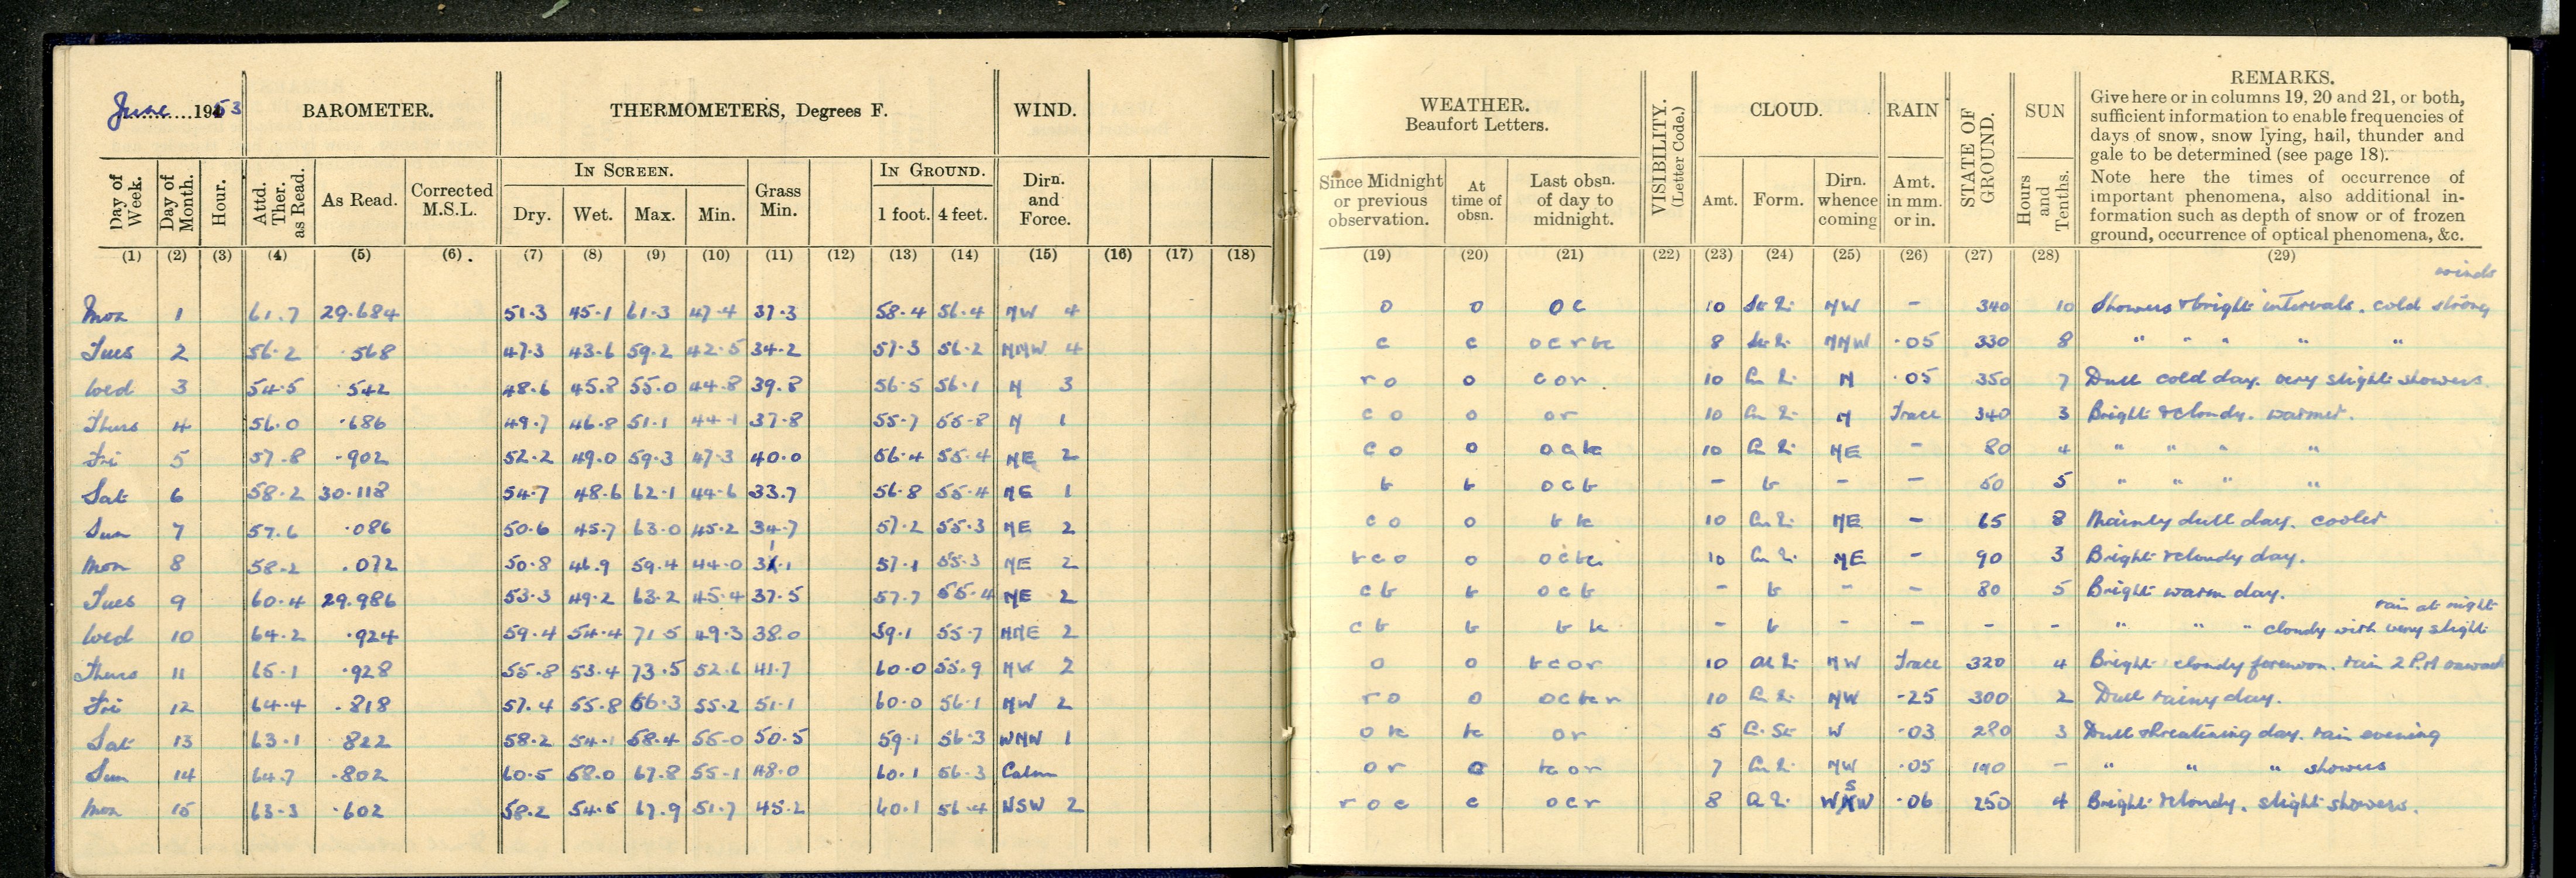 June 1953
BAROMETER.
THERMOMETERS, Degrees F.
WIND.
Day of Week.
Day of Month.
Hour.
Attd. Ther. as Read.
As Read.
Corrected M.S.L.
IN SCREEN.
Dry. Wet. Max. Min.
Grass Min.
IN GROUND.
1 foot. 4 feet.
Dirn. and Force.
(1) (2) (3) (4) (5) (6) (7) (8) (9) (10) (11) (12) (13) (14) (15) (16) (17) (18)
Mon 1 61.7 29.684 51.3 45.1 61.3 47.4 37.3 58.4 56.4 NW 4
Tues 2 56.2 .568 47.3 43.6 59.2 42.5 34.2 57.3 56.2 NNW 4
Wed 3 54.5 .542 48.6 45.8 55.0 44.8 39.8 56.5 56.1 N 3
Thurs 4 56.0 .686 49.7 46.8 51.1 44.1 37.8 55.7 55.8 N 1
Fri 5 57.8 .902 52.2 49.0 59.3 47.3 40.0 56.4 55.4 NE 2
Sat 6 58.2 30.118 54.7 48.6 62.1 44.6 33.7 56.8 55.4 NE 1
Sun 7 57.6 .086 50.6 45.7 63.0 45.2 34.7 57.2 55.3 NE 2
Mon 8 58.2 .072 50.8 46.9 59.4 44.0 31.1 57.1 55.3 NE 2
Tues 9 60.4 29.986 53.3 49.2 63.2 45.4 37.5 57.7 55.4 NE 2
Wed 10 64.2 .924 59.4 54.4 71.5 49.3 38.0 59.1 55.7 NNE 2
Thurs 11 65.1 .928 55.8 53.4 73.5 52.6 41.7 60.0 55.9 NW 2
Fri 12 64.4 .818 57.4 55.8 66.3 55.2 51.1 60.0 56.1 NW 2
Sat 13 63.1 .822 58.2 54.1 58.4 55.0 50.5 59.1 56.3 WNW 1
Sun 14 64.7 .802 60.5 58.0 67.8 55.1 48.0 60.1 56.3 Calm
Mon 15 63.3 .602 58.2 54.5 67.9 51.7 45.2 60.1 56.4 WSW 2
WEATHER.
Beaufort Letters.
Since Midnight or previous observation.
At time of obsn.
Last obsn. of day to midnight.
VISIBILITY. (Letter Code.)
CLOUD.
Amt. Form.
Dirn. whence coming
RAIN
Amt. in mm. or in.
STATE OF GROUND.
SUN
Hours and Tenths.
REMARKS.
Give here or in columns 19, 20 and 21, or both,
sufficient information to enable frequencies of
days of snow, snow lying, hail, thunder and
gale to be determined (see page 18).
Note here the times of occurrence of
important phenomena, also additional in-
formation such as depth of snow or of frozen
ground, occurrence of optical phenomena, &c.
(19) (20) (21) (22) (23) (24) (25) (26) (27) (28) (29)
winds
o o oc 10 NW - 340 10 Showers & bright intervals. cold strong
c c ocrbc 8 NNW .05 330 8 " " " " "
ro o cor 10 N .05 350 7 Dull cold day. very slight showers.
co o or 10 N Trace 340 3 Bright & cloudy. warmer.
co o 10 NE - 80 4 " " " "
b b ocb - b - - 50 5 " " " "
co o 10 NE - 65 8 Mainly dull day. cooler
bco o 10 NE - 90 3 Bright & cloudy day.
cb b ocb - b - - 80 5 Bright warm day.
rain at night
cb b - b - - - - " " " cloudy with very slight
o o bcor 10 NW Trace 320 4 Bright cloudy forenoon. rain 2 P.M onward
ro o 10 NW .25 300 2 Dull rainy day.
or 5 W .03 280 3 Dull threatining day. rain evening
or o 7 NW .05 190 - " " " showers
roc c ocr 8 WSW .06 250 4 Bright & cloudy. slight showers.